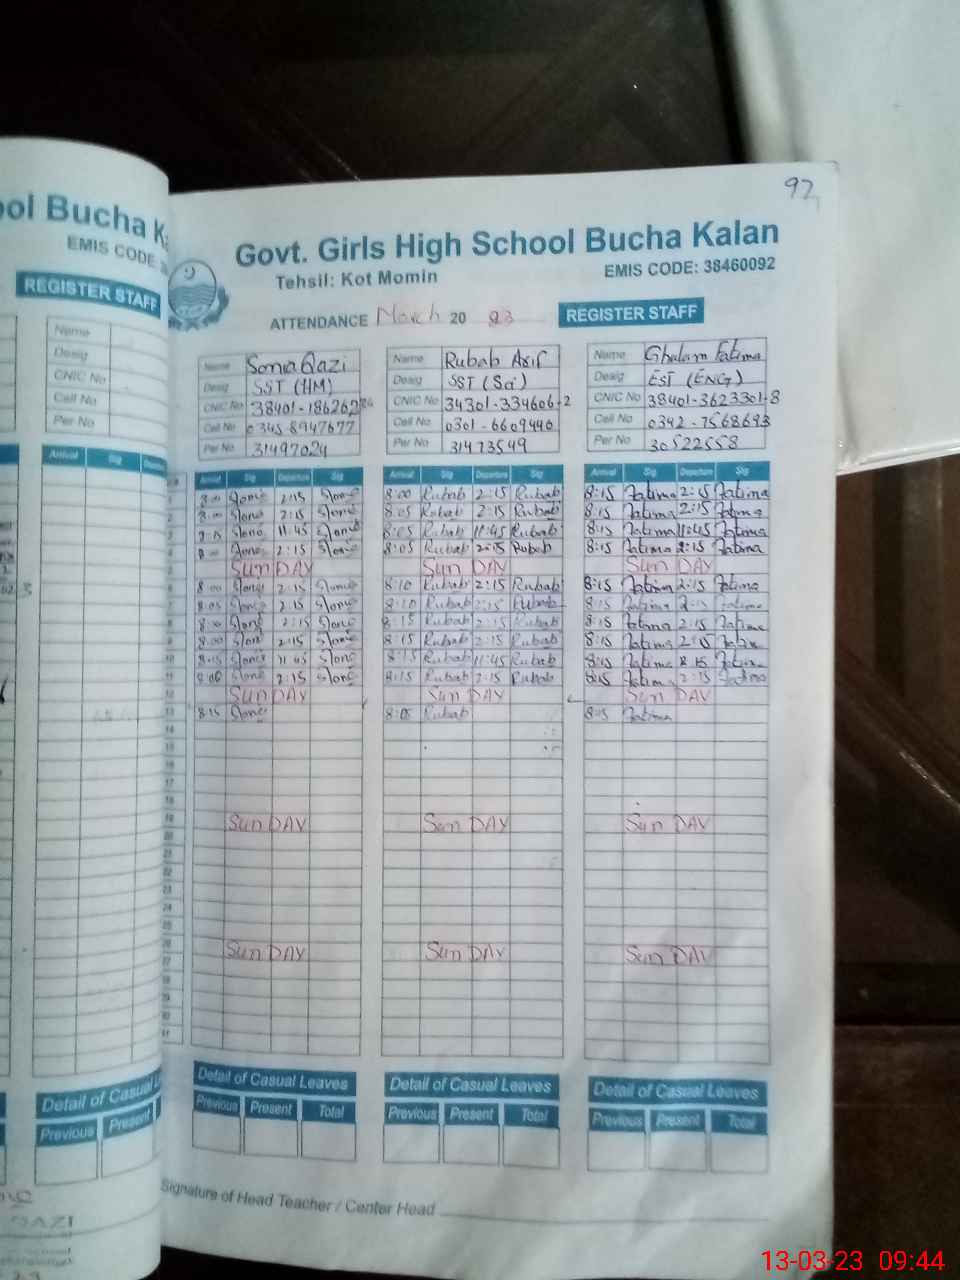 92
Bucha K
EMIS CODE
REGISTER STAFF
Name
Desig
CNIC No
Cell No
Per No
Arrival Sig
Govt. Girls High School Bucha Kalan
Tehsil: Kot Momin EMIS CODE: 38460092
ATTENDANCE March 20 23 REGISTER STAFF
Name Sonia Qazi Name Rubab Asif Name Ghulam Fatima
Desig SST (HM) Desig SST (Sci) Desig EST (ENG)
CNIC No CNIC No 34301-334606-2 CNIC No 38401-3623301-8
Cell No 0345-8947677 Cell No 0301-6609440 Cell No 0342-7568693
Per No 31497024 Per No 31473549 Per No 30522558
Arrival Sig Departure Sig Arrival Sig Departure Sig Arrival Sig Departure Sig
8:00 2:15 8:00 Rubab 2:15 Rubab 8:15 Fatima 2:15 Fatima
8:00 2:15 8:05 Rubab 2:15 Rubab 8:15 Fatima 2:15 Fatima
11:45 8:05 Rubab 11:45 Rubab 8:15 Fatima 11:45 Fatima
8:00 2:15 8:05 Rubab 2:15 Rubab 8:15 Fatima 2:15 Fatima
Sun DAY Sun DAY Sun DAY
8:00 2:15 8:10 Rubab 2:15 Rubab 8:15 Fatima 2:15 Fatima
8:05 2:15 8:10 Rubab 2:15 Rubab 8:15 Fatima 2:15 Fatima
8:00 2:15 8:15 Rubab 2:15 Rubab 8:15 Fatima 2:15 Fatima
8:00 2:15 8:15 Rubab 2:15 Rubab 8:15 Fatima 2:15 Fatima
8:15 11:45 8:15 Rubab 11:45 Rubab 8:15 Fatima Fatima
8:00 2:15 8:15 Rubab 2:15 Rubab 8:15 Fatima 2:15 Fatima
Sun DAY Sun DAY Sun DAY
8:15 8:05 Rubab 8:15 Fatima
Sun DAY Sun DAY Sun DAY
Sun DAY Sun DAY Sun DAY
Detail of Casual Leaves Detail of Casual Leaves Detail of Casual Leaves
Previous Present Total Previous Present Total Previous Present Total
Detail of Casual
Previous Present
Signature of Head Teacher / Center Head
13-03-23 09:44